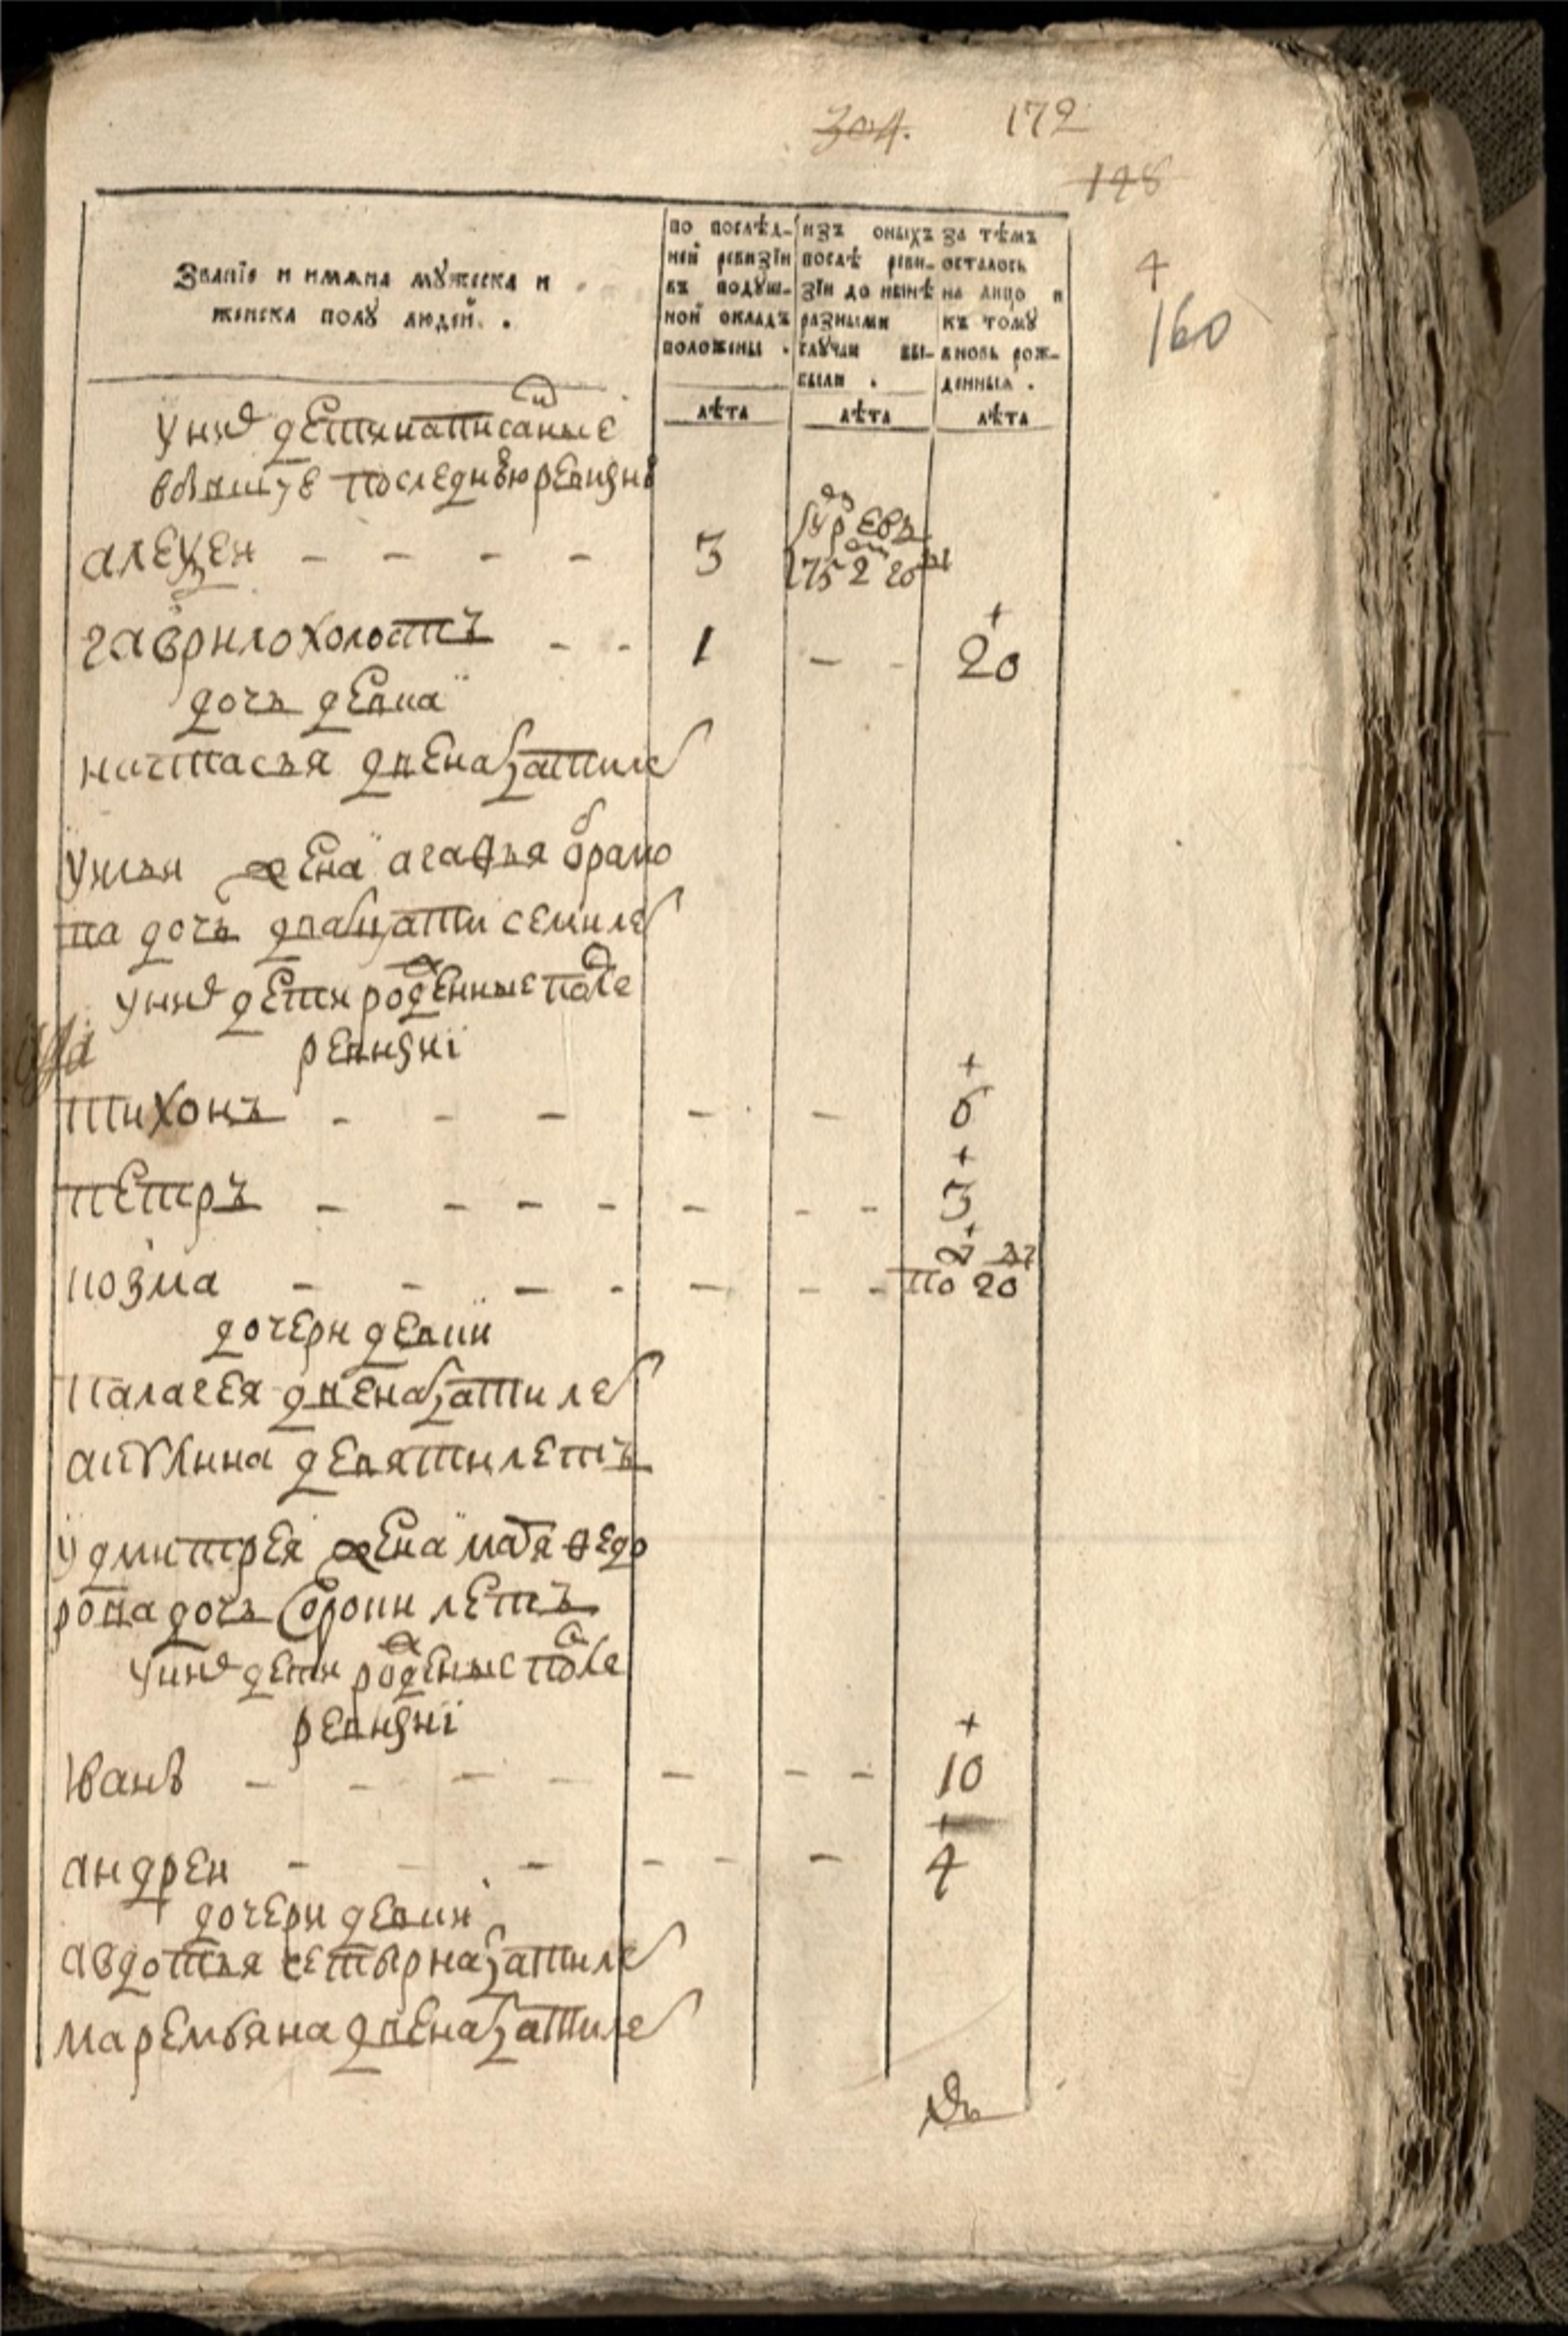 304. 172
198
4
160
Званїе и имѧна мꙋжеска и
женска полꙋ людей .
по послѣд-
ней ревизїи
въ подꙋш-
ной окладъ
положены .
изъ оныхъ
послѣ реви-
зїи до нынѣ
разными
слꙋчаи вы-
были .
За тѣмъ
осталось
на лицо и
къ томꙋ
вновь рож-
денныхъ .
лѣта лѣта лѣта
у них дети написаные
последнюю ревизию
алеѯеи - - - - 3 1752 году
гаврило холостъ - - 1 - - 20
дочь девка
настасья двенатцати лет
жена агафья
дочь дватцати семи лет
у них дети рожденные после
ревизиї
тихонъ - - - - - 6
петръ - - - - - - - 3
козма - - - - - - - по 20
дочери девки
палагея двенатцати лет
акулина девяти летъ
у дмитрея жена марья федо
рова дочь сороки летъ
у них дети рожденые после
ревизиї
Иванъ - - - - - - - 10
андреи - - - - - - 4
дочери девки
авдотья четырнатцати лет
маремьяна двенатцати лет